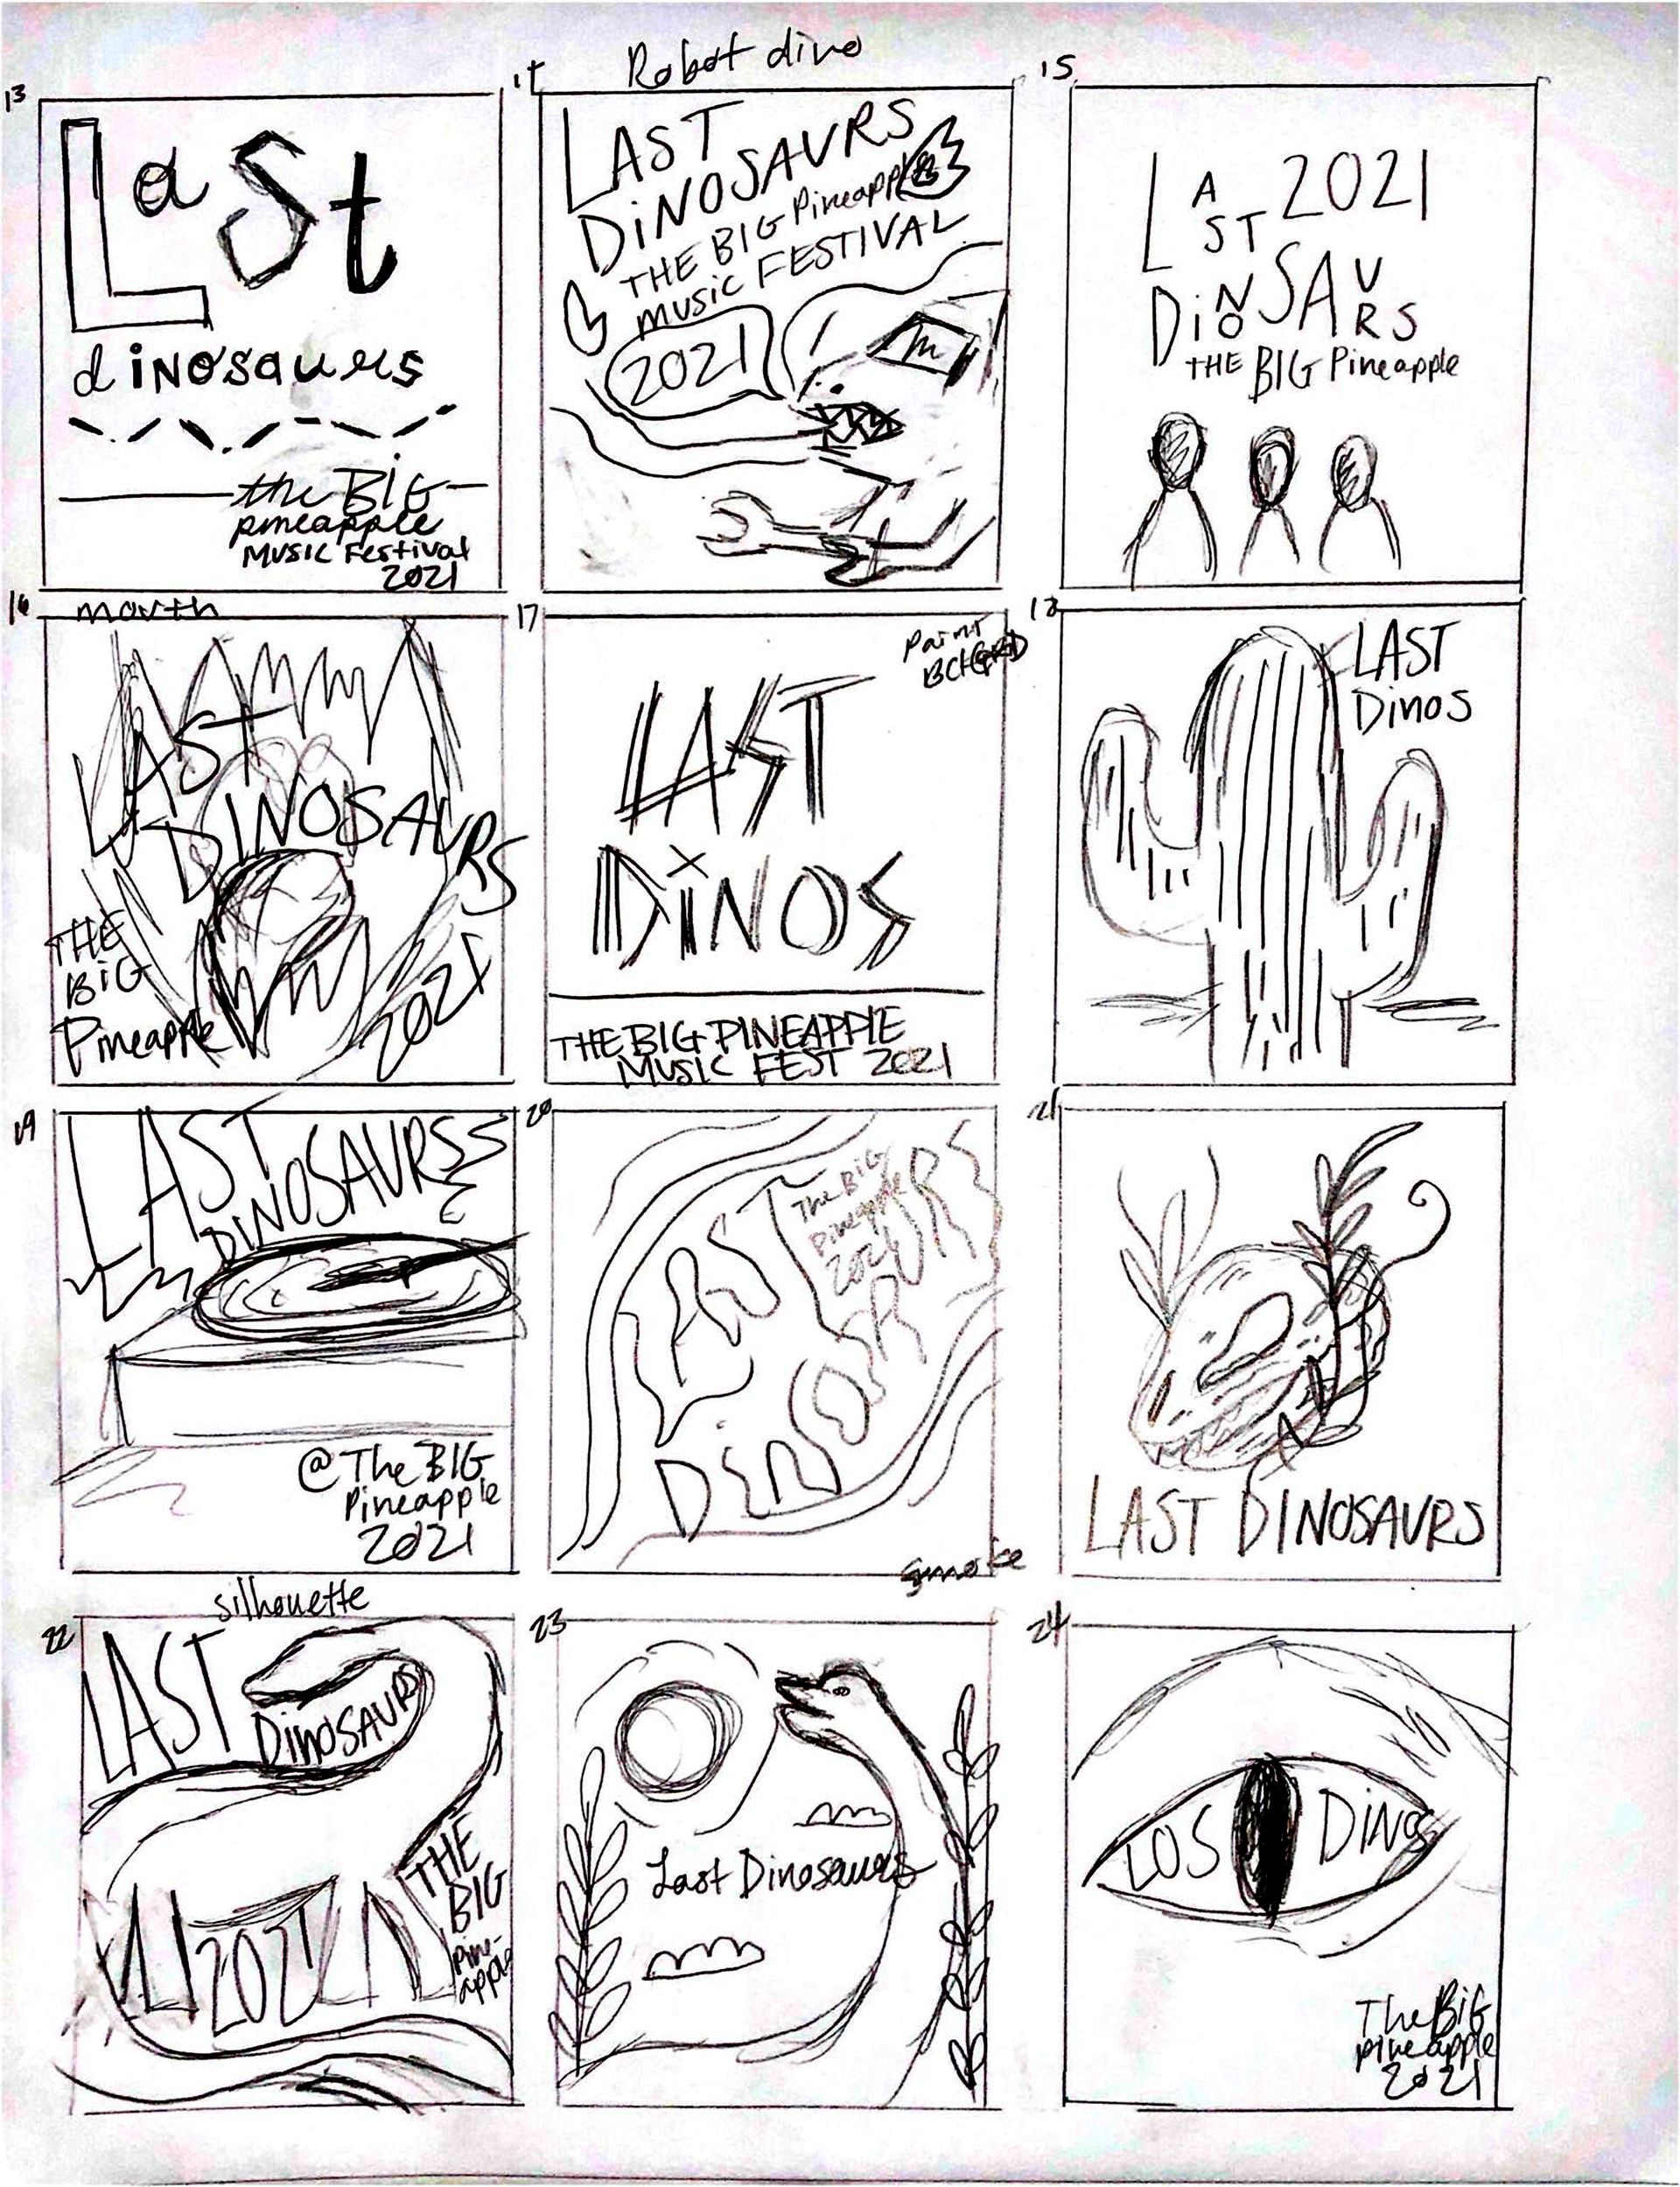 13
Last
dinosaurs
the BIG
pineapple
MUSIC Festival
2021
14
Robot dino
LAST
DiNOSAURS
THE BIG Pineapple
MUSIC FESTIVAL
2021
15
LAST 2021
DiNOSAURS
THE BIG Pineapple
16
mouth
LAST
DINOSAURS
THE
BiG
Pineapple
2021
17
Paint
BCKGRD
LAST
DiNOS
THE BIG PINEAPPLE
MUSIC FEST 2021
18
LAST
Dinos
19
LAST
DINOSAURS
@ The BIG
Pineapple
2021
20
LAST
DiNOSAURS
The BiG
Pineapple
2021
smoke
21
LAST DINOSAURS
22
silhouette
LAST
DinoSAURS
2021
THE
BIG
pine-
apple
23
Last Dinosaurs
24
LOS DiNOS
The BiG
pineapple
2021